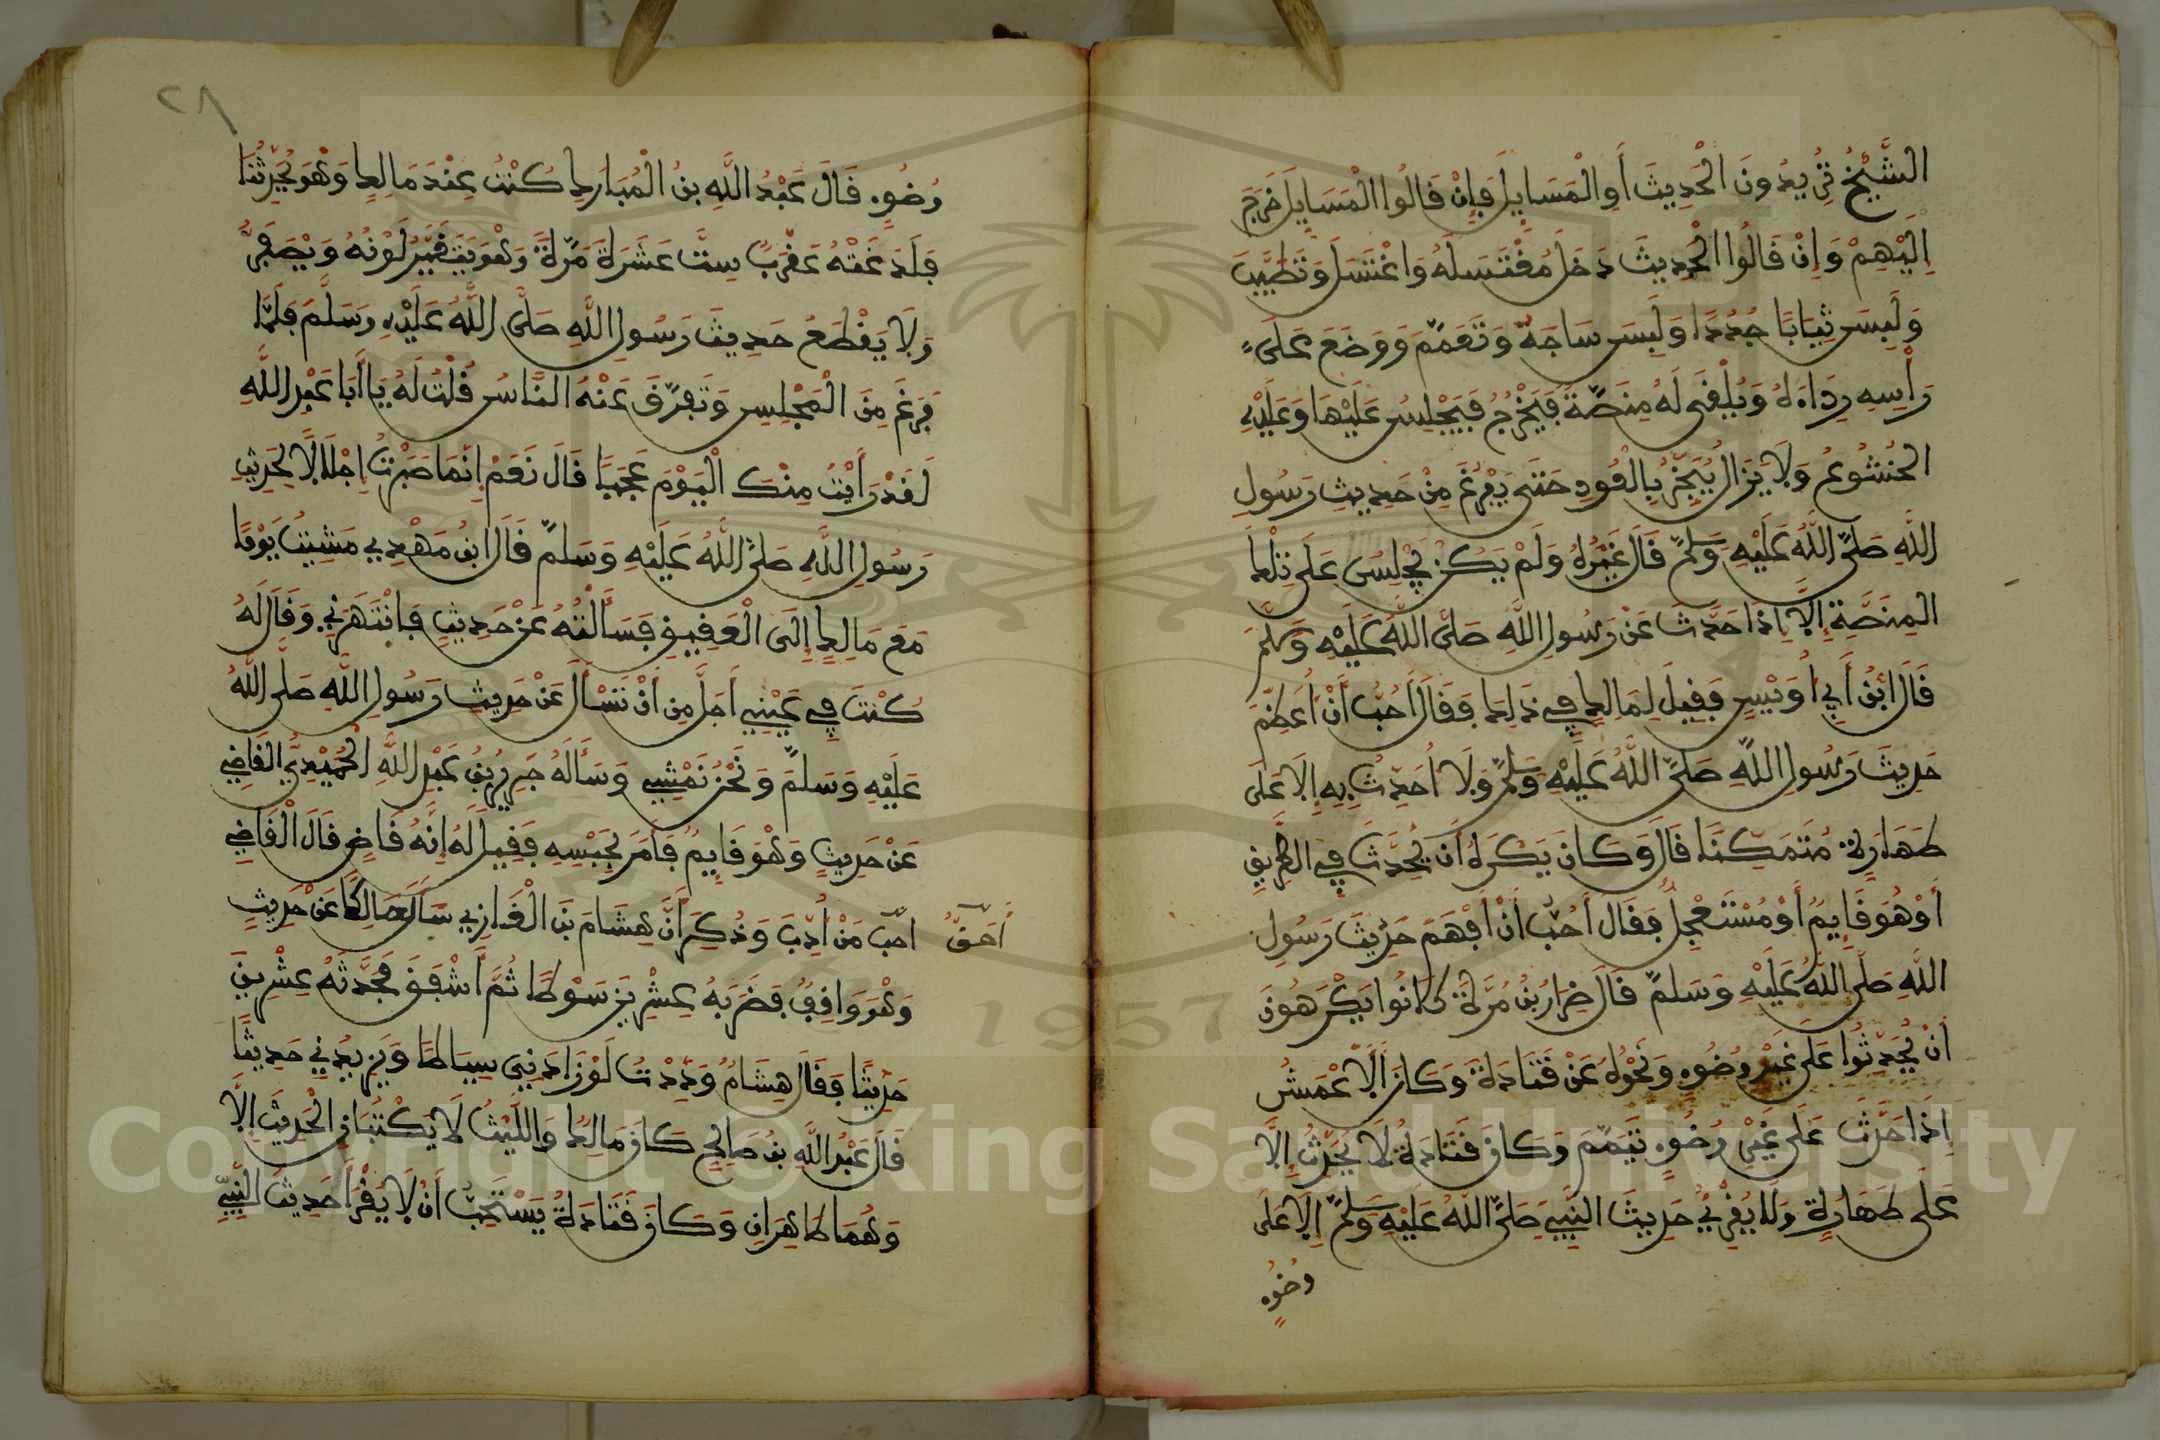 الشَّيْخُ تُرِيدُونَ الْحَدِيثَ أَوِ الْمَسَايِلَ فَإِنْ قَالُوا الْمَسَايِلَ خَرَجَ
إِلَيْهِمْ وَإِنْ قَالُوا الْحَدِيثَ دَخَلَ مُغْتَسَلَهُ وَاغْتَسَلَ وَتَطَيَّبَ
وَلَبِسَ ثِيَابًا جُدُدًا وَلَبِسَ سَاجَهُ وَتَعَمَّمَ وَوَضَعَ عَلَى
رَأْسِهِ رِدَاءَهُ وَيُلْقَى لَهُ مِنَصَّةٌ فَيَخْرُجُ فَيَجْلِسُ عَلَيْهَا وَعَلَيْهِ
الخُشُوعُ وَلَا يَزَالُ يُبَخَّرُ بِالْعُودِ حَتَّى يَفْرُغَ مِنْ حَدِيثِ رَسُولِ
اللَّهِ صَلَّى اللَّهُ عَلَيْهِ وَسَلَّمَ قَالَ غَيْرُهُ وَلَمْ يَكُنْ يَجْلِسُ عَلَى تِلْكَ
المِنَصَّةِ إِلَّا إِذَا حَدَّثَ عَنْ رَسُولِ اللَّهِ صَلَّى اللَّهُ عَلَيْهِ وَسَلَّمَ
قَالَ ابْنُ أَبِي أُوَيْسٍ فَقِيلَ لِمَالِكٍ فِي ذَلِكَ فَقَالَ أُحِبُّ أَنْ أُعَظِّمَ
حَدِيثَ رَسُولِ اللَّهِ صَلَّى اللَّهُ عَلَيْهِ وَسَلَّمَ وَلَا أُحَدِّثُ بِهِ إِلَّا عَلَى
طَهَارَةٍ مُتَمَكِّنًا قَالَ وَكَانَ يَكْرَهُ أَنْ يُحَدِّثَ فِي الطَّرِيقِ
أَوْ هُوَ قَايِمٌ أَوْ مُسْتَعْجِلٌ فَقَالَ أُحِبُّ أَنْ أُفْهِمَ حَدِيثَ رَسُولِ
اللَّهِ صَلَّى اللَّهُ عَلَيْهِ وَسَلَّمَ قَالَ ضِرَارُ بْنُ مُرَّةَ كَانُوا يَكْرَهُونَ
أَنْ يُحَدِّثُوا عَلَى غَيْرِ وُضُوءٍ وَنَحْوُهُ عَنْ قَتَادَةَ وَكَانَ الْأَعْمَشُ
إِذَا حَدَّثَ عَلَى غَيْرِ وُضُوءٍ تَيَمَّمَ وَكَانَ قَتَادَةُ لَا يُحَدِّثُ إِلَّا
عَلَى طَهَارَةٍ وَلَا يُقْرِئُ حَدِيثَ النَّبِيِّ صَلَّى اللَّهُ عَلَيْهِ وَسَلَّمَ إِلَّا عَلَى
وضوءٍ
٢٨
وُضُوءٍ قَالَ عَبْدُ اللَّهِ بْنُ الْمُبَارَكِ كُنْتُ عِنْدَ مَالِكٍ وَهُوَ يُحَدِّثُنَا
فَلَدَغَتْهُ عَقْرَبٌ سِتَّ عَشَرَةَ مَرَّةً وَهُوَ يَتَغَيَّرُ لَوْنُهُ وَيَصْفَرُّ
وَلَا يَقْطَعُ حَدِيثَ رَسُولِ اللَّهِ صَلَّى اللَّهُ عَلَيْهِ وَسَلَّمَ فَلَمَّا
فَرَغَ مِنَ الْمَجْلِسِ وَتَفَرَّقَ عَنْهُ النَّاسُ قُلْتُ لَهُ يَا أَبَا عَبْدِ اللَّهِ
لَقَدْ رَأَيْتُ مِنْكَ الْيَوْمَ عَجَبًا قَالَ نَعَمْ إِنَّمَا صَبَرْتُ إِجْلَالًا لِحَدِيثِ
رَسُولِ اللَّهِ صَلَّى اللَّهُ عَلَيْهِ وَسَلَّمَ قَالَ ابْنُ مَهْدِي مَشَيْتُ يَوْمًا
مَعَ مَالِكٍ إِلَى الْعَقِيقِ فَسَأَلْتُهُ عَنْ حَدِيثٍ فَانْتَهَرَنِي وَقَالَ لَهُ
كُنْتَ فِي عَيْنِي أَجَلَّ مِنْ أَنْ تَسْأَلَ عَنْ حَدِيثِ رَسُولِ اللَّهِ صَلَّى اللَّهُ
عَلَيْهِ وَسَلَّمَ وَنَحْنُ نَمْشِي وَسَأَلَهُ جَرِيرُ بْنُ عَبْدِ اللَّهِ الْحُمَيْدِيُّ القَاضِي
عَنْ حَدِيثٍ وَهُوَ قَايِمٌ فَأَمَرَ بِحَبْسِهِ فَقِيلَ لَهُ إِنَّهُ قَاضٍ قَالَ الْقَاضِي
أحب مَنْ أُدِّبَ وَذُكِرَ أَنَّ هِشَامَ بْنَ الْغَازِي سَأَلَ مَالِكًا عَنْ حَدِيثٍ
أَحَقُّ
وَهُوَ وَاقِفٌ فَضَرَبَهُ عِشْرِينَ سَوْطًا ثُمَّ أَشْفَقَ فَحَدَّثَهُ عِشْرِينَ
حَدِيثًا فَقَالَ هِشَامٌ وَدِدْتُ لَوْ زَادَنِي سِيَاطًا وَيَزِيدُنِي حَدِيثًا
قَالَ عَبْدُ اللَّهِ بْنُ صَالِحٍ كَانَ مَالِكٌ وَاللَّيْثُ لَا يَكْتُبَانِ الْحَدِيثَ إِلَّا
وَهُمَا طَاهِرَانِ وَكَانَ قَتَادَةُ يَسْتَحِبُّ أَنْ لَا يَقْرَأَ حَدِيثَ النَّبِيِّ
1957
Copyright © King Saud University